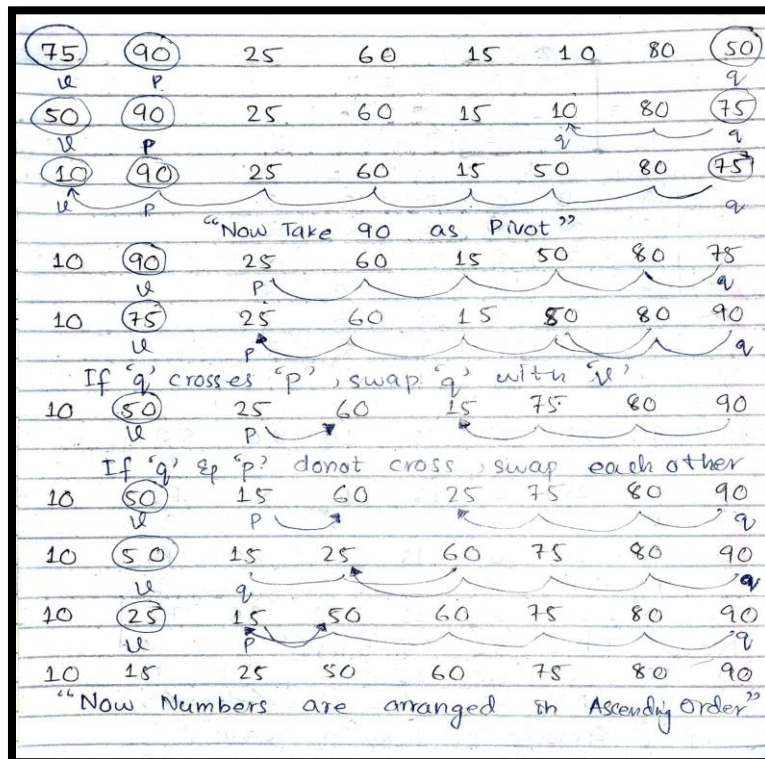 75 90 25 60 15 10 80 50
v P q
50 90 25 60 15 10 80 75
v P q q
10 90 25 60 15 50 80 75
v P q
"Now Take 90 as Pivot"
10 90 25 60 15 50 80 75
v P q
10 75 25 60 15 50 80 90
v P q
If 'q' crosses 'p', swap 'q' with 'v'
10 50 25 60 15 75 80 90
v P
If 'q' & 'p' donot cross, swap each other
10 50 15 60 25 75 80 90
v P q
10 50 15 25 60 75 80 90
v q q
10 25 15 50 60 75 80 90
v P q
10 15 25 50 60 75 80 90
"Now Numbers are arranged in Ascending Order"